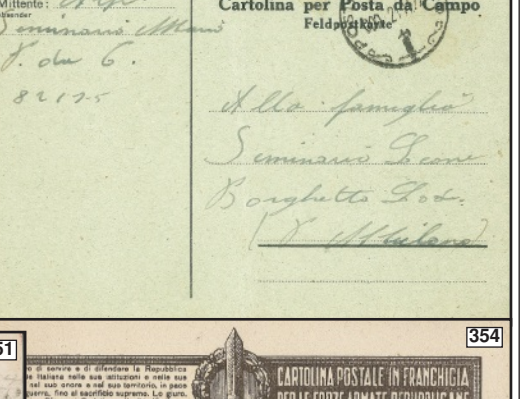 Mittente:
Absender
Seminario
P. da C.
82125
Cartolina per Posta da Campo
Feldpostkarte
Alla famiglia
Seminario Leone
Borghetto Lod.
(P. Milano)
351
354
o di servire e di difendere la Repubblica
Italiana nelle sue istituzioni e nelle sue
nel suo onore e nel suo territorio, in pace
guerra, fino al sacrificio supremo. Lo giuro.
CARTOLINA POSTALE IN FRANCHIGIA
PER LE FORZE ARMATE REPUBBLICANE